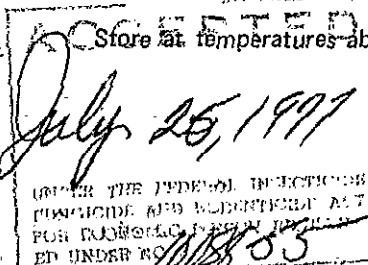 ACCEPTED
Store at temperatures ab
July 25, 1977
UNDER THE FEDERAL INSECTICIDE
FUNGICIDE AND RODENTICIDE ACT
FOR ECONOMIC POISON
ED UNDER NO